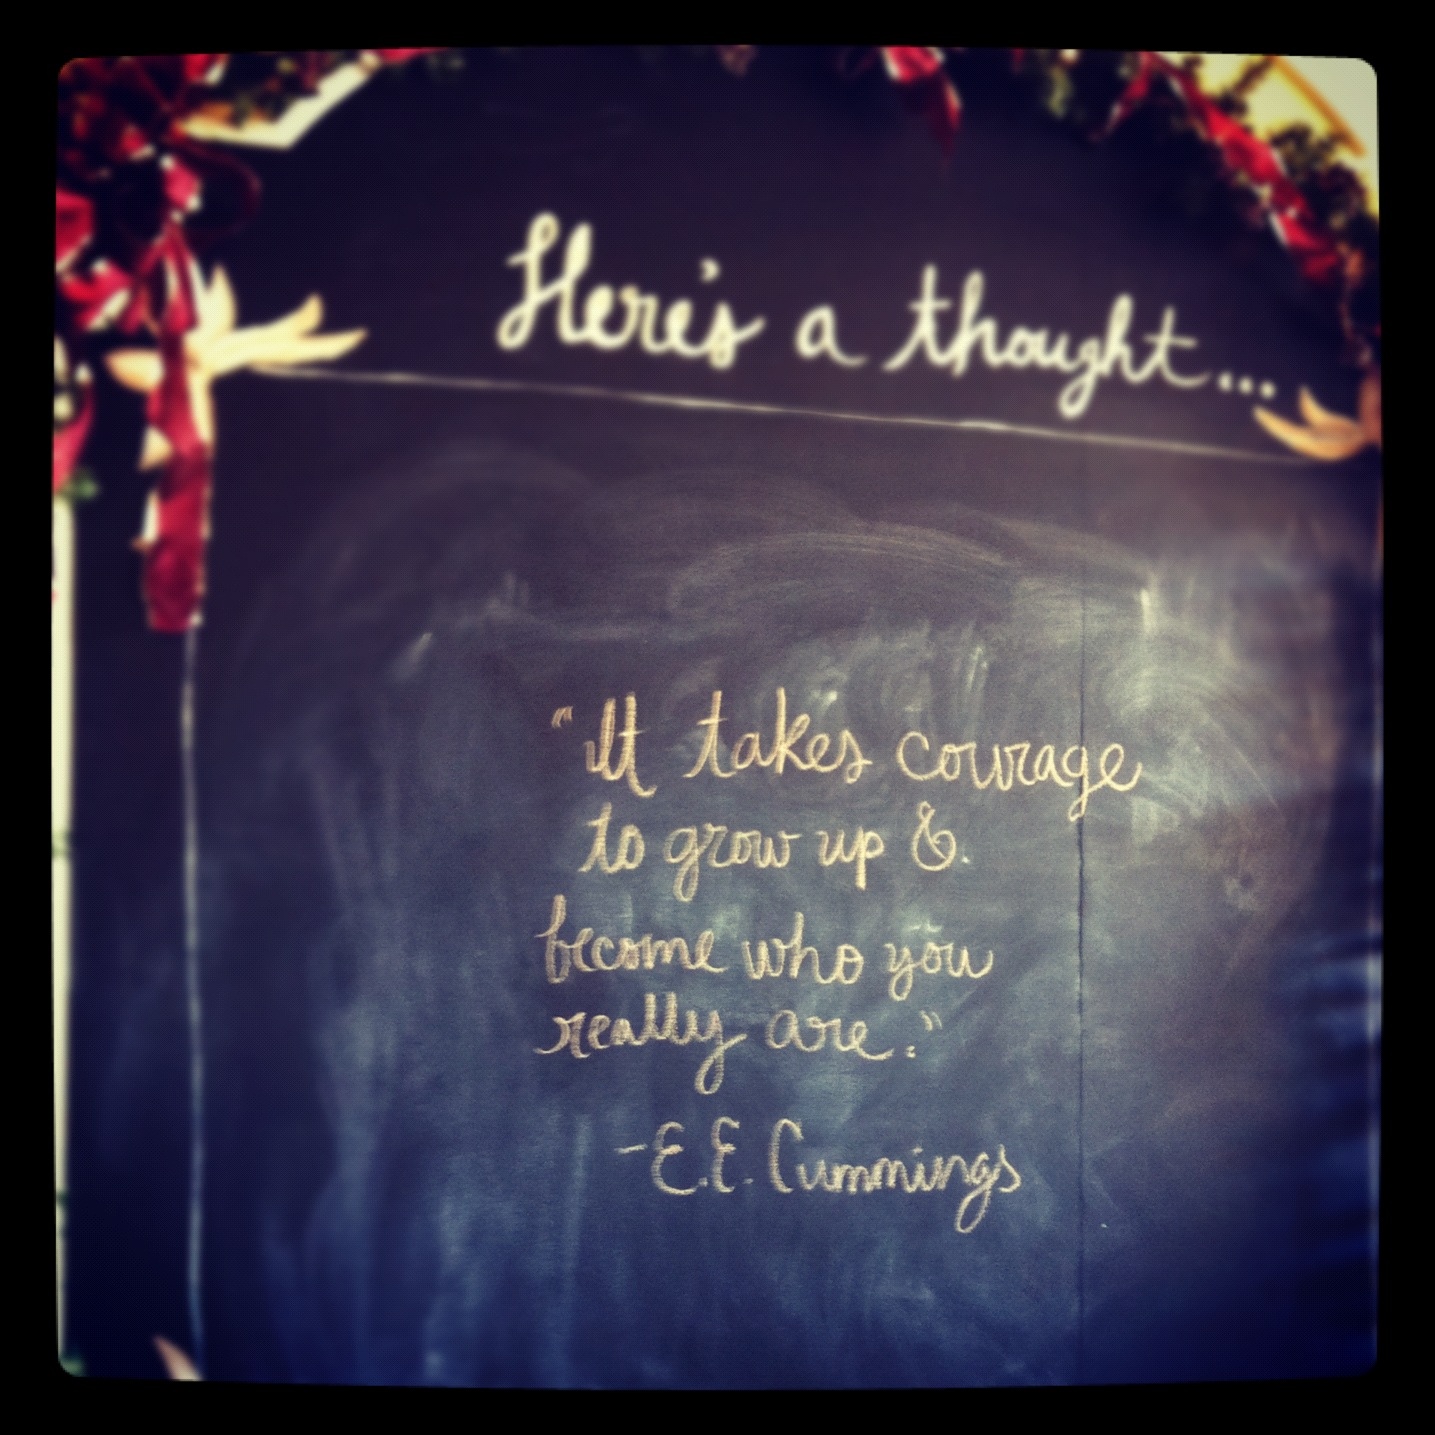 Here's a thought...
"It takes courage
to grow up &
become who you
really are."
-E.E. Cummings